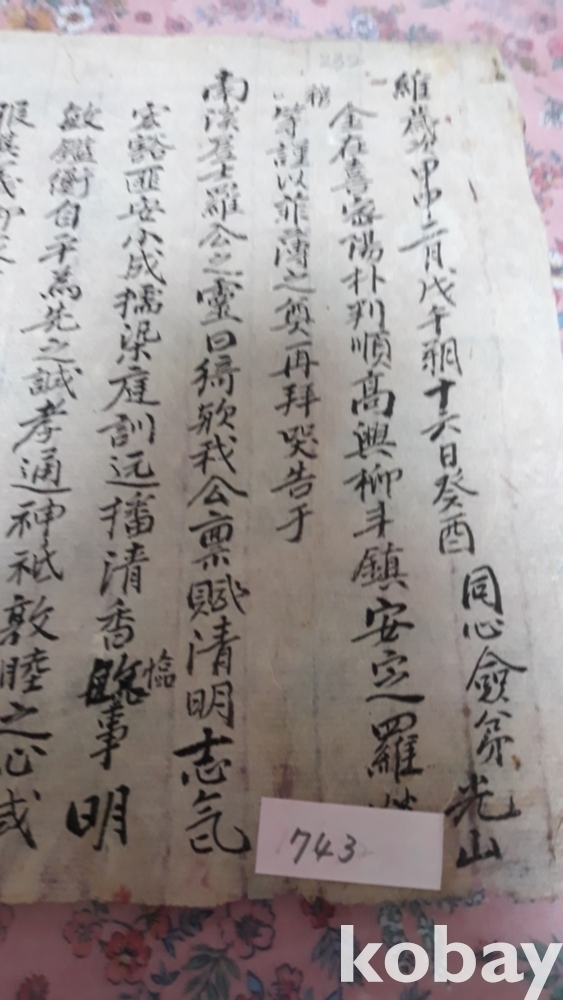 維歲次甲申二月戊午朔十六日癸酉 同心僉券光山
金在喜密陽朴判順高興柳斗鎮安定羅
等謹以菲薄之奠再拜哭告于
南溪居士羅公之靈曰猗歟我公稟賦清明志氣
宏豁匪安小成擩染庭訓远播清香臨事明
敏鑑衡自平為先之誠孝通神祗敦睦之心或
743
kobay